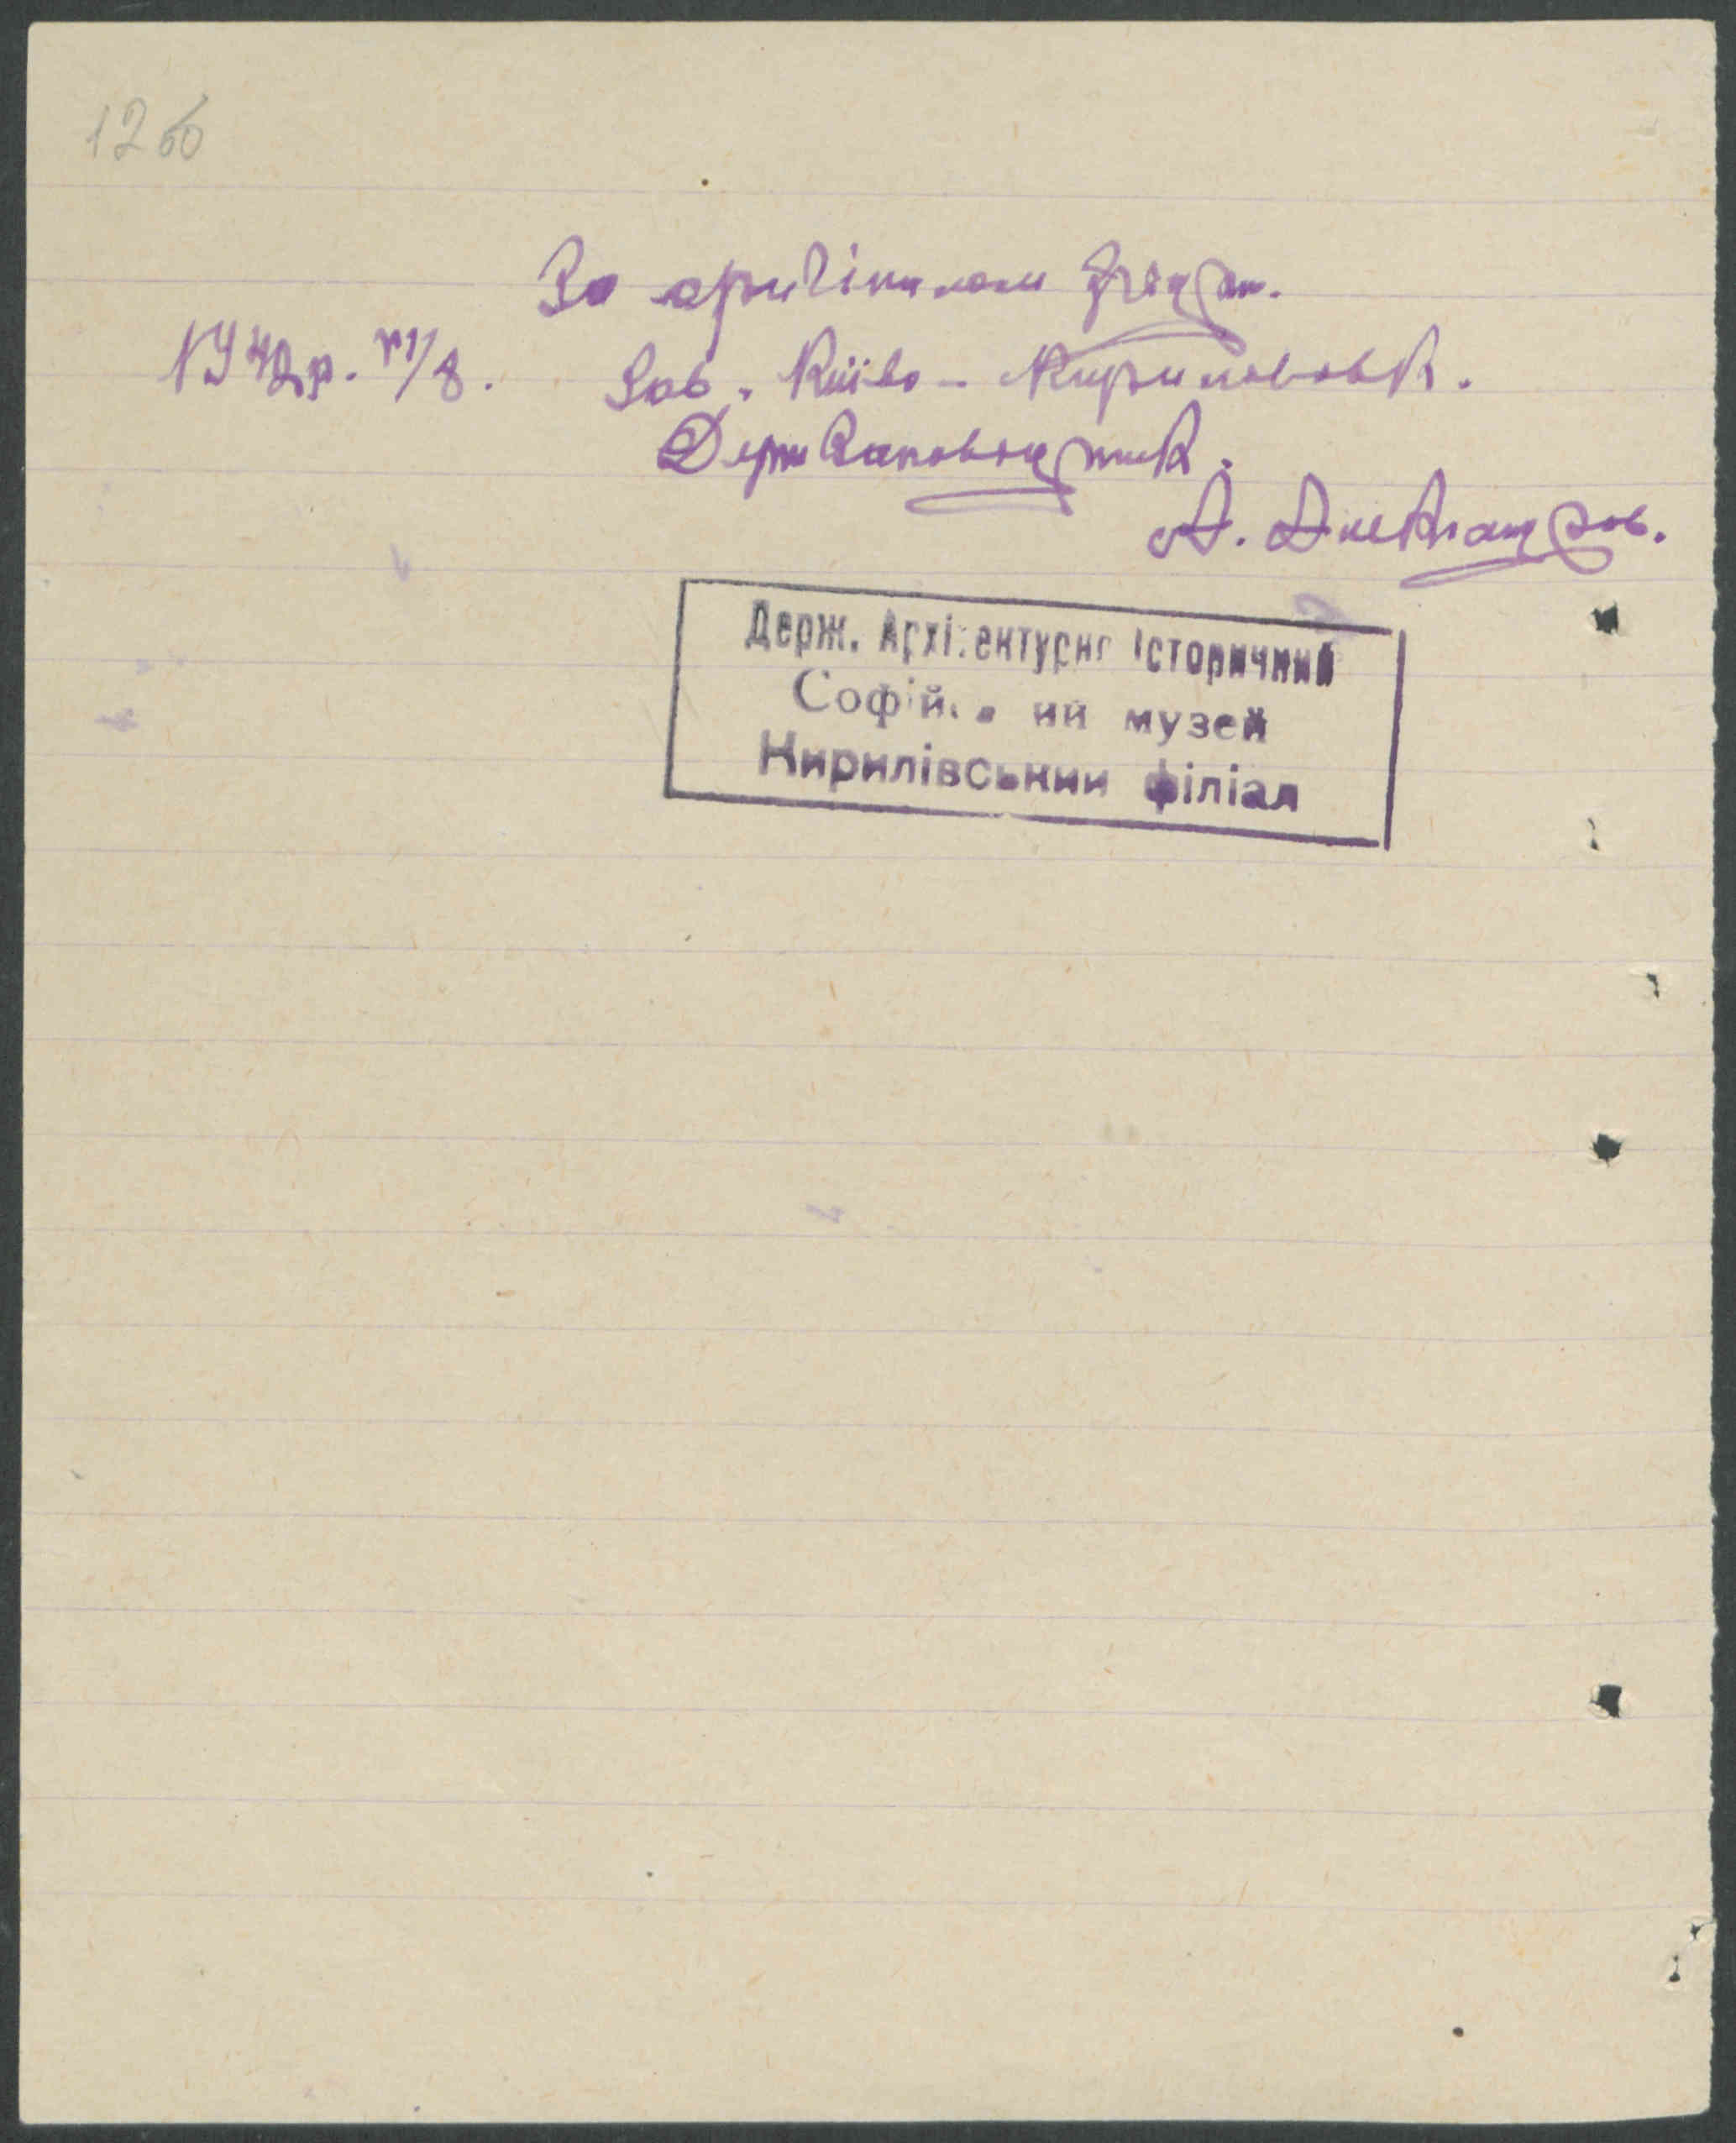 12 об
За оригіналом згідно.
1942 р. VII/8. Зав. Київо-Кириловськ.
Держ Заповідник.
А. Александров.
Держ. Архітектурно Історичний
Софійський музей
Кирилівський філіал